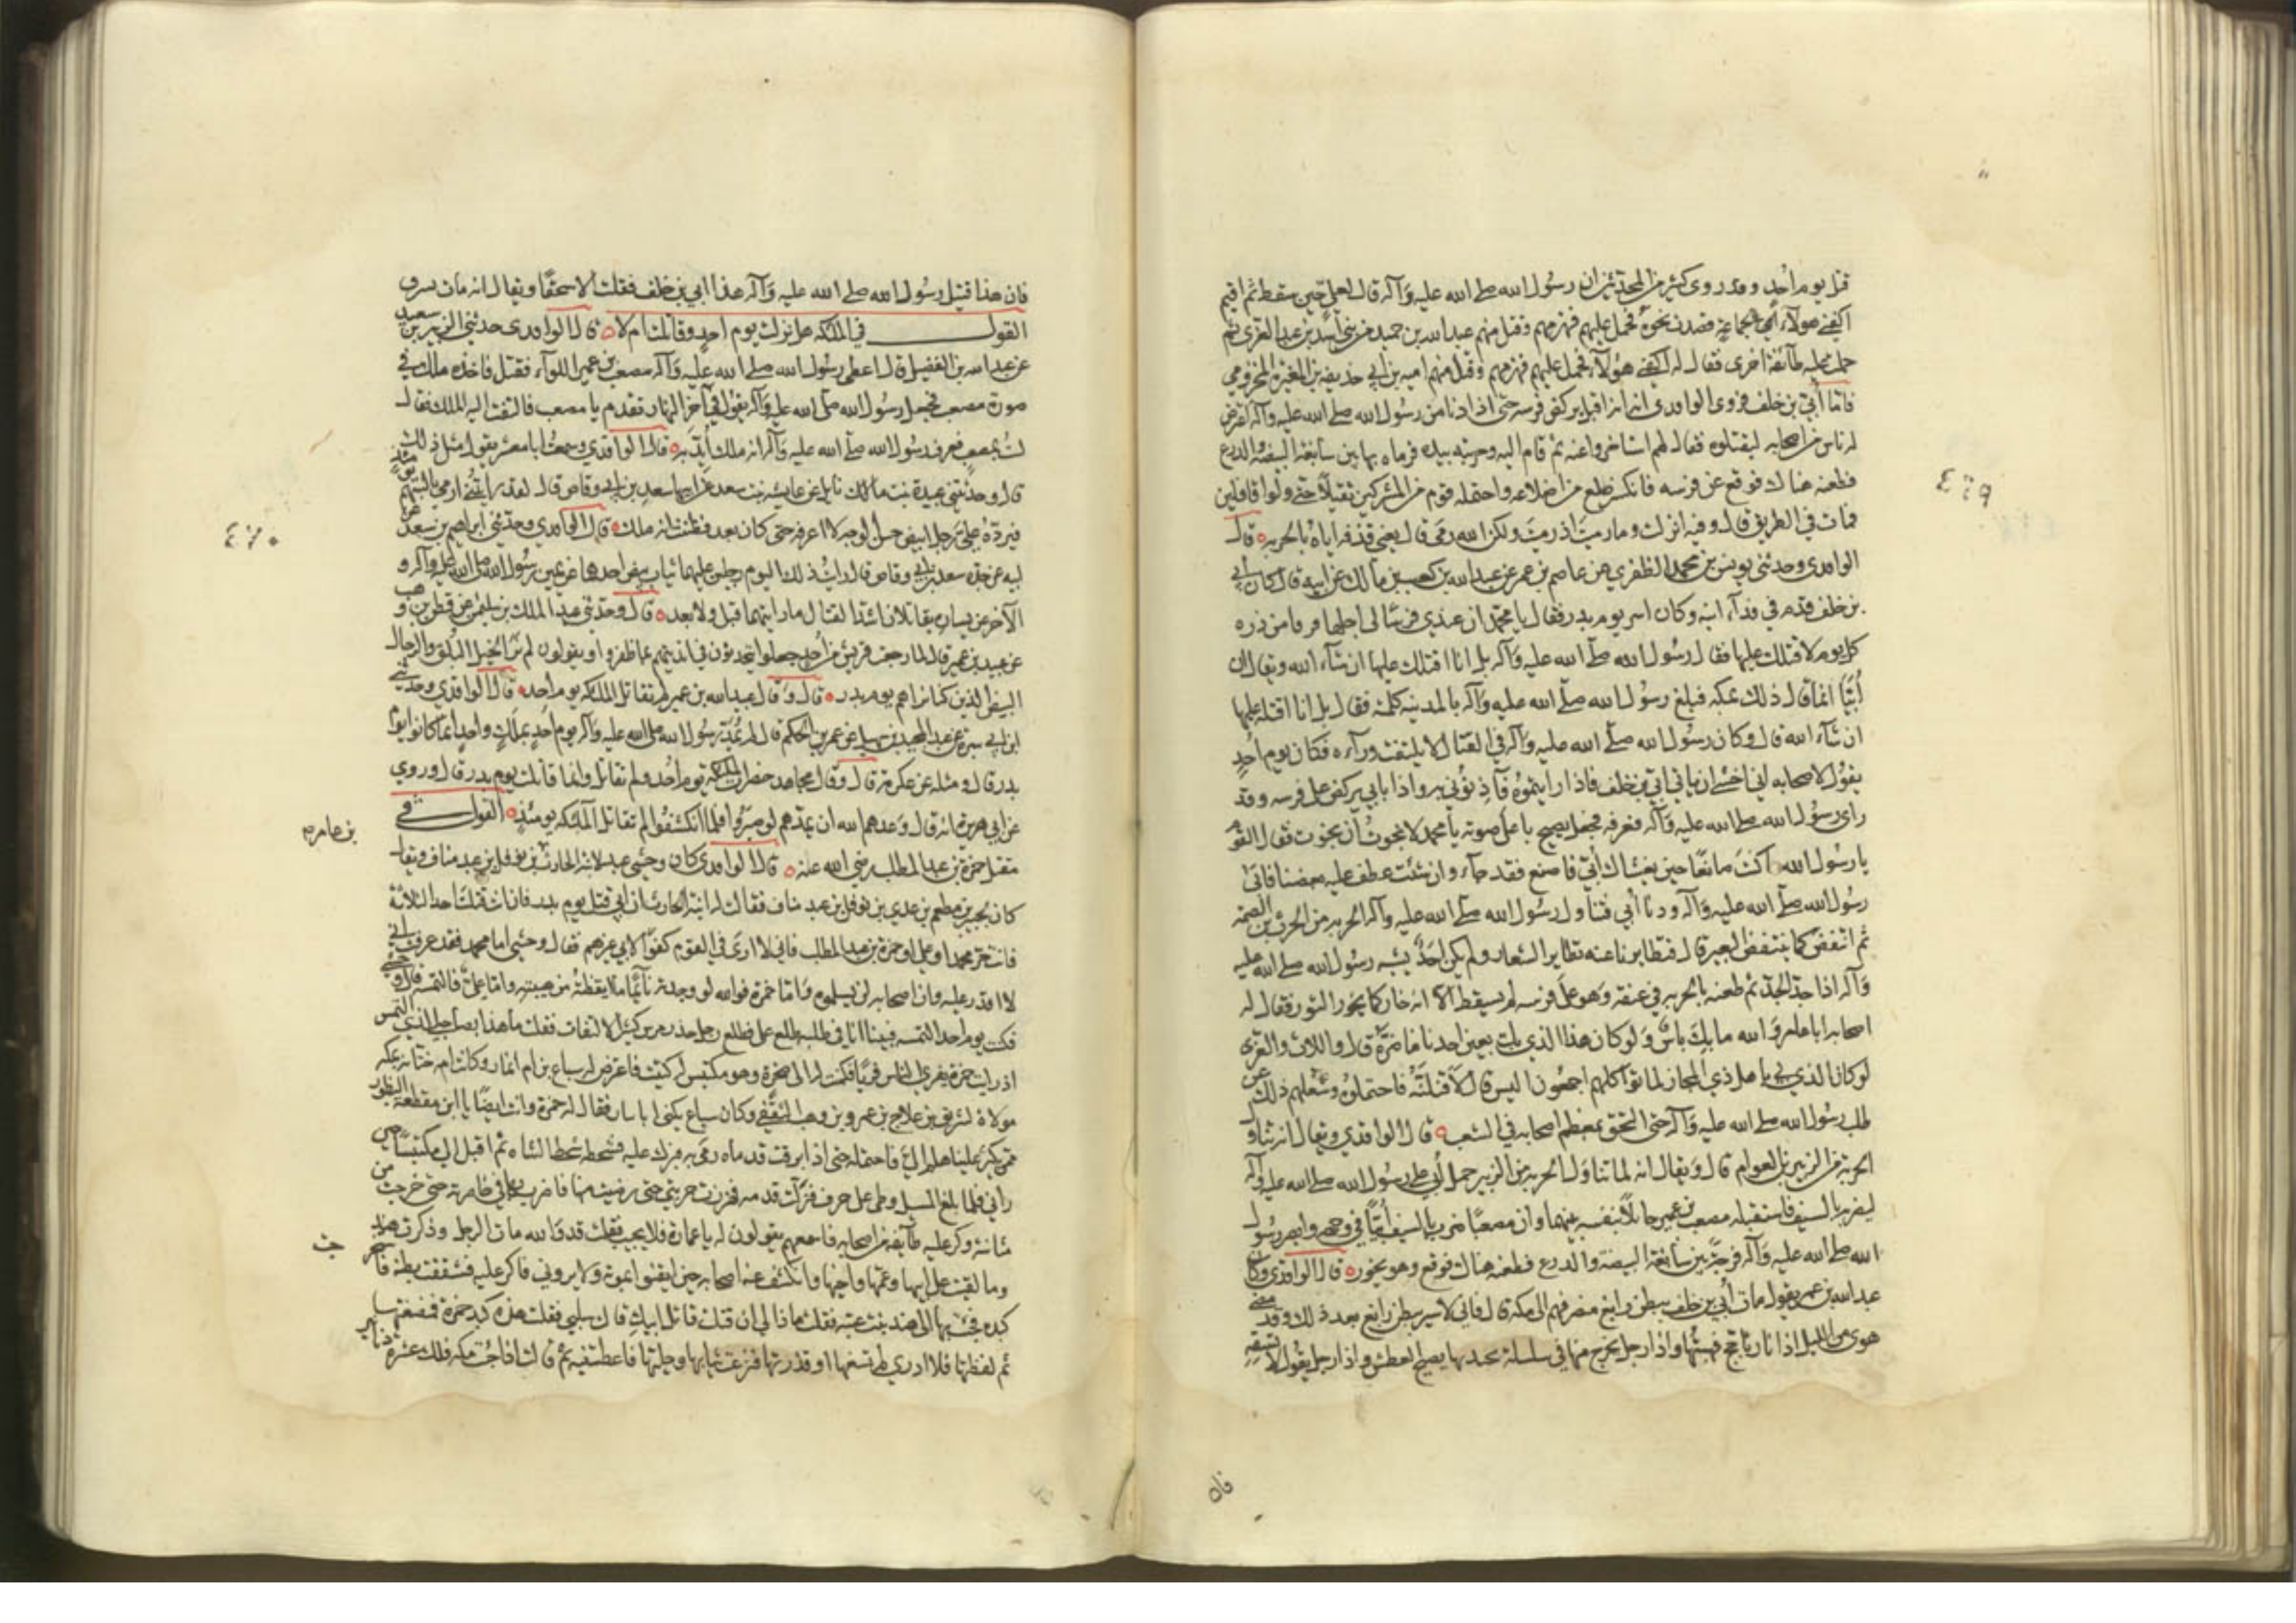 قتل يوم احد وقد روى كثير من المحدثين ان رسول الله صلى الله عليه وآله قال لعلي حين سقط ثم اقيم
اكفني هؤلاء لجماعة قصدت نحوه فحمل عليهم فهزمهم وقتل منهم عبد الله بن حميد من بني اسد بن عبد العزى ثم
حملت عليه طائفة اخرى فقال له اكفني هؤلاء فحمل عليهم فهزمهم وقتل منهم امية بن ابي حذيفة بن المغيرة المخزومي
فاما أبي بن خلف فروى الواقدي انه اقبل يركض فرسه حتى اذا دنا من رسول الله صلى الله عليه وآله اعترض
له ناس من اصحابه ليقتلوه فقال لهم استاخروا عنه ثم قام اليه وحربته بيده فرماه بها بين سابغة البيضة والدرع
فطعنه هناك فوقع عن فرسه فانكسر ضلع من اضلاعه واحتمله قوم من المشركين ثقيلا حتى ولوا قافلين
فمات في الطريق قال وفيه انزلت وما رميت اذ رميت ولكن الله رمى قال يعني قذفه اياه بالحربه قال
الواقدي وحدثني يونس بن محمد الظفري عن عاصم بن عمر عن عبد الله بن كعب بن مالك عن ابيه قال كان أبي
بن خلف قدم في فداء ابنه وكان اسر يوم بدر فقال يا محمد ان عندي فرسا لي اجلها فرقا من ذره
كل يوم لاقتلك عليها فقال رسول الله صلى الله عليه وآله بل انا اقتلك عليها ان شاء الله ويقال ان
أبيا انما قال ذلك بمكه فبلغ رسول الله صلى الله عليه وآله بالمدينه كلمته فقال بل انا اقتله عليها
ان شاء الله قال وكان رسول الله صلى الله عليه وآله في القتال لا يلتفت وراءه فكان يوم احد
يقول لاصحابه اني اخشى ان ياتي أبي بن خلف من خلفي فاذا رايتموه فآذنوني به واذا بابي يركض على فرسه وقد
راى رسول الله صلى الله عليه وآله فعرفه فجعل يصيح باعلى صوته يا محمد لا نجوت ان نجوت فقال القوم
يا رسول الله ما كنت صانعا حين يغشاك أبي فاصنع فقد جاء وان شئت عطف عليه بعضنا فابى
رسول الله صلى الله عليه وآله ودنا أبي فتناول رسول الله صلى الله عليه وآله الحربه من الحرث بن الصمة
ثم انتفض كما ينتفض البعير قال فتطايرنا عنه تطاير الشعارير ولم يكن احد يشبه رسول الله صلى الله عليه
وآله اذا جد الجد ثم طعنه بالحربه في عنقه وهو على فرسه لم يسقط الا انه خار كما يخور الثور فقال له
اصحابه ابا عامر والله ما بك باس ولو كان هذا الذي بك بعين احدنا ما ضره قال واللات والعزى
لو كان الذي بي باهل ذي المجاز لماتوا كلهم اجمعون اليس قال لاقتلنه فاحتملوه وشغلهم ذلك عن
طلب رسول الله صلى الله عليه وآله حتى التحق بعظم اصحابه في الشعب قال الواقدي ويقال انه تناول
الحربة من الزبير بن العوام قال ويقال انه لما تناول الحربه من الزبير حمل أبي على رسول الله صلى الله عليه وآله
ليضربه بالسيف فاستقبله مصعب بن عمير حائلا بنفسه بينهما وان مصعبا ضرب بالسيف أبيا في وجهه وابصر رسول
الله صلى الله عليه وآله فرجة بين سابغة البيضة والدرع فطعنه هناك فوقع وهو يخور قال الواقدي وكان
عبد الله بن عمر يقول مات أبي بن خلف ببطن رابغ منصرفهم الى مكة قال فاني لاسير ببطن رابغ بعد ذلك وقد مضى
هوى من الليل اذا نار تاجج فهبتها واذا رجل يخرج منها في سلسلة يجذبها يصيح العطش واذا رجل يقول لا تسقه
فان
٤٦٩
فان هذا قتيل رسول الله صلى الله عليه وآله هذا ابي بن خلف فقلت الا سحقا ويقال انه مات بسرف
القول في الملئكه هل نزلت يوم احد وقاتلت ام لا قال الواقدي حدثني الزبير بن سعيد
عن عبد الله بن الفضيل قال اعطى رسول الله صلى الله عليه وآله مصعب بن عمير اللواء فقتل فاخذه ملك في
صورة مصعب فجعل رسول الله صلى الله عليه وآله يقول في آخر النهار تقدم يا مصعب فالتفت اليه الملك فقال
لست بمصعب فعرف رسول الله صلى الله عليه وآله انه ملك أيد به قال الواقدي وسمعت ابا معشر يقول مثل ذلك
قال وحدثتني عبيدة بنت نايل عن عايشه بنت سعد عن ابيها سعد بن ابي وقاص قال لقد رايتني ارمي بالسهم يومئذ
فيرده علي رجل ابيض حسن الوجه لا اعرفه حتى كان بعد فظننت انه ملك قال الواقدي وحدثني ابراهيم بن سعد عن
ابيه عن جده سعد بن ابي وقاص قال رايت ذلك اليوم رجلين عليهما ثياب بيض احدهما عن يمين رسول الله صلى الله عليه وآله و
الآخر عن يساره يقاتلان اشد القتال ما رايتهما قبل ولا بعده قال وحدثني عبد الملك بن سليم عن قطن بن وهب
عن عبيد بن عمير قال لما رجعت قريش من احد جعلوا يتحدثون في انديتهم بما ظفروا ويقولون لم نر الخيل البلق والرجال
البيض الذين كنا نراهم يوم بدر قال وقال عبيد الله بن عمير لم تقاتل الملئكه يوم احد قال الواقدي وحدثني
ابن ابي سبرة عن عبد المجيد بن سهيل عن عمر بن الحكم قال لم يمد رسول الله صلى الله عليه وآله يوم احد بملك واحد انما كانوا يوم
بدر قال ومثله عن عكرمة قال وقال مجاهد حضرت الملئكة يوم أحد ولم تقاتل وانما قاتلت يوم بدر قال وروي
عن ابي هريرة انه قال وعدهم الله ان يمدهم لو صبروا فلما انكشفوا لم تقاتل الملئكه يومئذ القول في
مقتل حمزة بن عبد المطلب رضي الله عنه قال الواقدي كان وحشي عبدا لابنة الحارث بن نوفل بن عبد مناف ويقال
بن عامر
كان لجبير بن مطعم بن عدي بن نوفل بن عبد مناف فقالت له ابنة الحارث ان ابي قتل يوم بدر فان انت قتلت احد الثلاثة
فانت حر محمدا وعلي او حمزة بن عبد المطلب فاني لا ارى في القوم كفوا لابي غيرهم فقال وحشي اما محمد فقد عرفت اني
لا اقدر عليه وان اصحابه لن يسلموه واما حمزة فوالله لو وجدته نائما ما ايقظته من هيبته واما علي فالتمسه قال وحشي
فكنت يوم احد التمسه فبينا انا في طلبه طلع علي فطلع رجل حذر مرس كثير الالتفات فقلت ما هذا بصاحبي الذي التمس
اذ رايت حمزة يفري الناس فريا فكمنت له الى صخرة وهو مكبس له كتيت فاعترض له سباع بن ام انمار وكانت امه ختانه بمكه
مولاة لشريق بن علاج بن عمرو بن وهب الثقفي وكان سباع يكنى ابا نيار فقال له حمزة وانت ايضا يا ابن مقطعة البظور
ممن يكثر علينا هلم الي فاحتمله حتى اذا برقت قدماه رمى به فبرك عليه فشحطه شحط الشاه ثم اقبل الي مكبسا حين
راني فلما بلغ المسيل وطئ على جرف فزلت قدمه فهززت حربتي حتى رضيت منها فاضرب بها في خاصرته حتى خرجت من
مثانته وكر عليه طائفة من اصحابه فاسمعهم يقولون له يا عمارة فلا يجيب فقلت قد والله مات الرجل وذكرت هندا
وما لقيت على ابيها وعمها واخيها وانكشف عنه اصحابه حين ايقنوا بموته ولا يروني فاكر عليه فشققت بطنه فاخرجت
جت
كبده فجئت بها الى هند بنت عتبه فقلت ماذا لي ان قتلت قاتل ابيك قالت سلبي فقلت هذه كبد حمزة فمضغتها
ثم لفظتها فلا ادري لم تسغها او قذرتها فنزعت ثيابها وحليها فاعطتنيه ثم قالت اذا جئت مكه فلك عشرة دنانير
٤٧٠